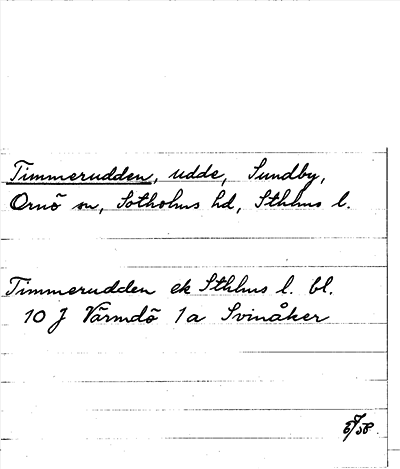 Timmerudden, udde, Sundby,
Ornö sn, Sotholms hd, Sthlms l.
Timmerudden ek Sthlms l. bl.
10 J Värmdö 1a Svinåker